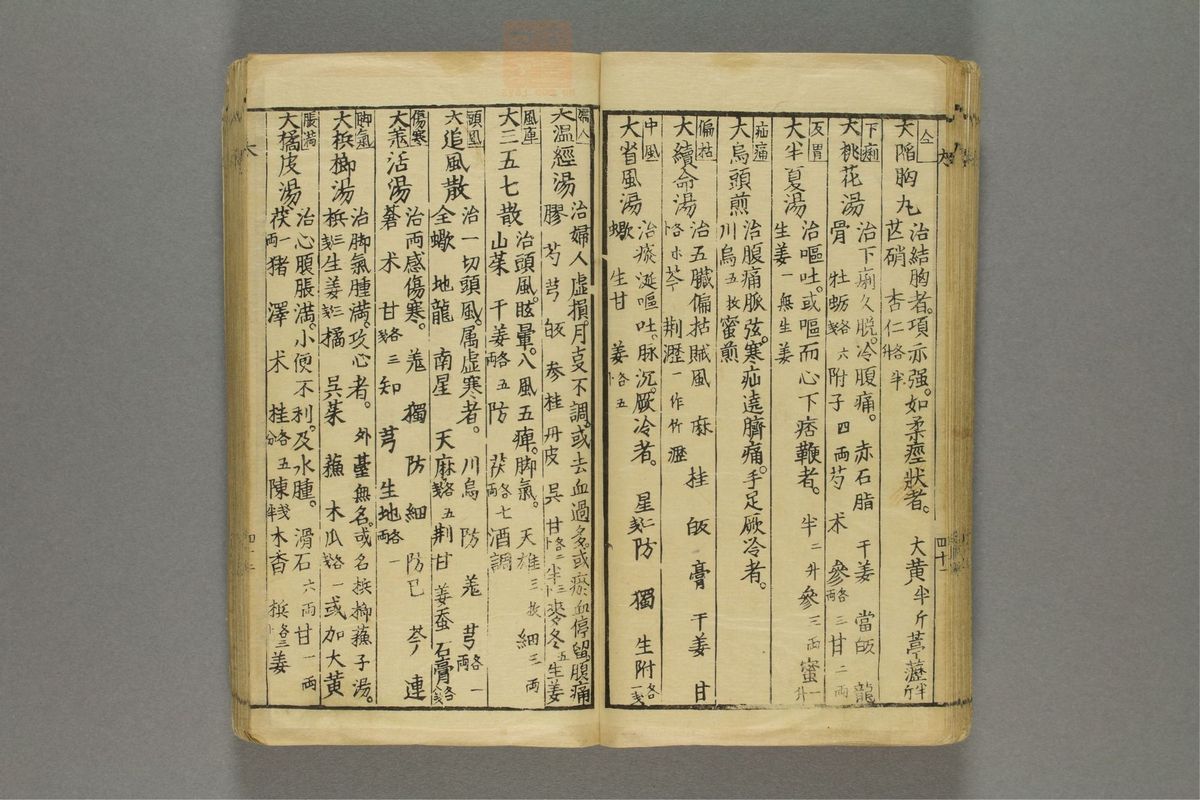 大陥胸丸 治結胸者。項亦强。如柔痙状者。 大黄半斤 葶藶半升
芒硝 杏仁各半升
下痢
大桃花湯 治下痢久脱。冷腹痛。 赤石脂 干姜 當皈 龍
骨 牡蛎各六戔 附子四両 芍 术 參各三両 甘二両
反胃
大半夏湯 治嘔吐。或嘔而心下痞鞕者。 半二升 參三両 蜜一升
生姜一無生姜
疝痛
大烏頭煎 治腹痛脈弦。寒疝遶臍痛。手足厥冷者。
川烏五枚 蜜煎
偏枯
大續命湯 治五臓偏枯賊風 麻 桂 皈 膏 干姜 甘
杏 芎 荆瀝一作竹瀝
中風
大省風湯 治痰涎嘔吐。脉沉。厥冷者。 星 防 獨 生附各一戔
蠍 生甘 姜五
四十一
婦人
大温經湯 治婦人虚損。月支不調。或去血過多。或瘀血停留。腹痛
膠 芍 芎 皈 參 桂 丹皮 呉 甘 半 麥冬五 生姜
風痺
大三五七散 治頭風。眩暈。八風五痺。脚氣。 天雄三枚 細三両
山茱 干姜各五両 防 茯各七両 酒調
頭風
大追風散 治一切頭風。属虚寒者。 川烏 防 羗 芎各一両
全蠍 地龍 南星 天麻各五戔 荆 甘 姜蚕 石膏各八戔
傷寒
大羗活湯 治両感傷寒。 羗 獨 防 細 防巳 芩 連
蒼 术 甘各三戔 知 芎 生地各一両
脚氣
大梹榔湯 治脚氣腫満。攻心者。 外䑓無名。或名梹榔蘓子湯。
梹三戔 生姜三戔 橘 呉茱 蘓 木瓜各一戔 或加大黄
脹満
大橘皮湯 治心腹脹満。小便不利。及水腫。 滑石六両 甘一両
茯一両 猪 澤 术 桂各五分 陳戔半 木香 梹各三 姜